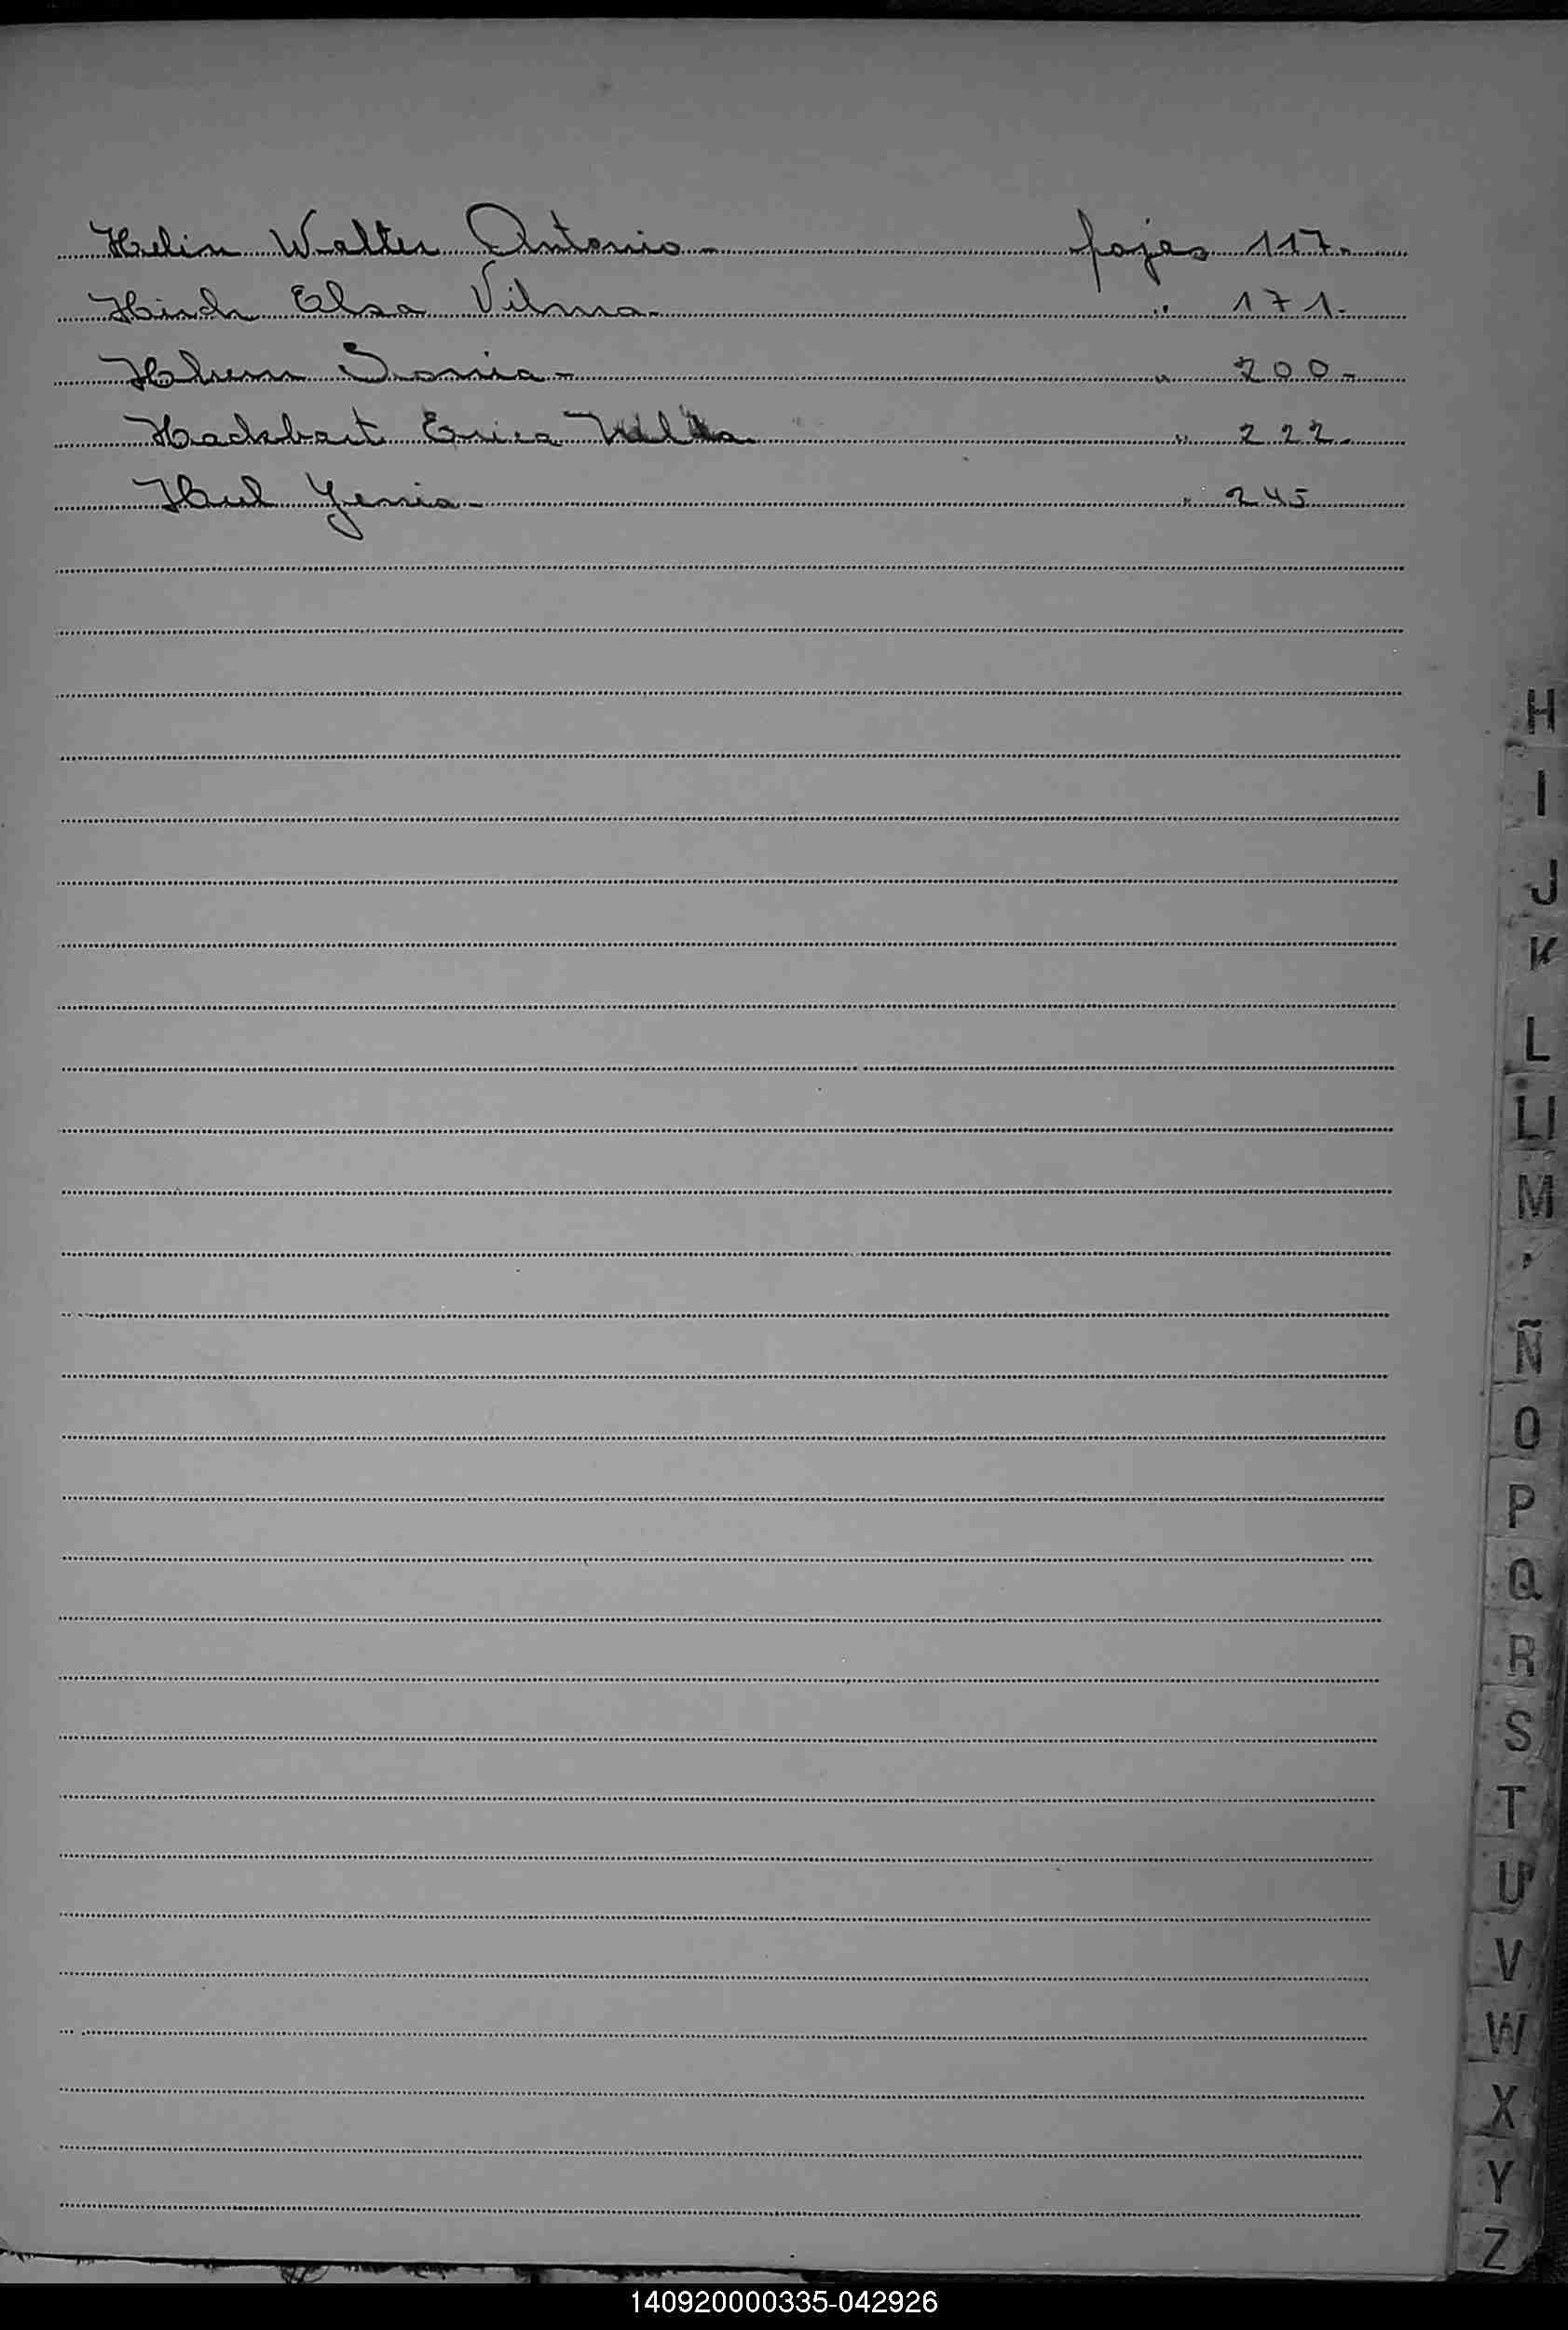 Helin Walter Antonio - fojas 117.-
Hirch Elsa Vilma.- " 171.-
Sonia - " 200 -
Hackbart Erica " 222.-
Hul Yenia - " 245
H
I
J
K
L
Ll
M
Ñ
O
P
Q
R
S
T
U
V
W
X
Y
Z
140920000335-042926